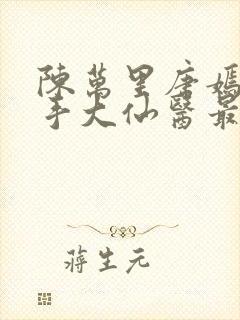 陳萬里唐嫣
手大仙醫最
蔣生元